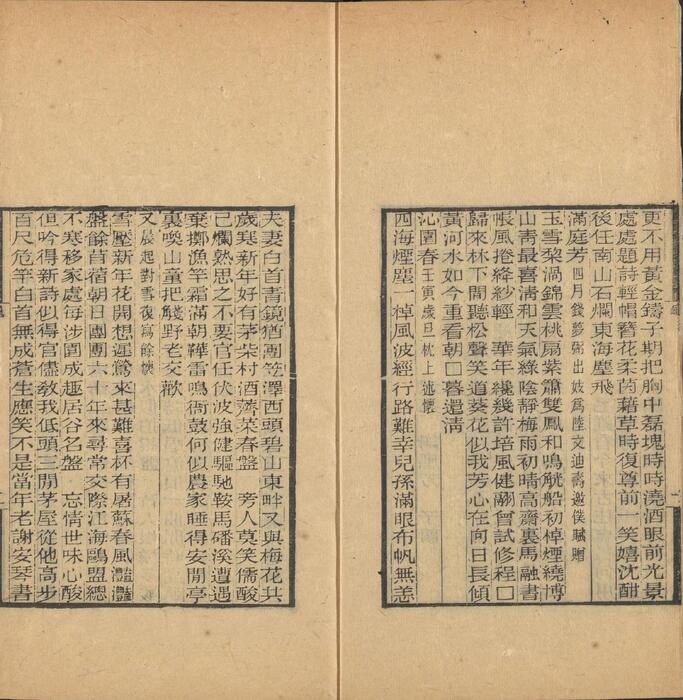 更不用黃金鑄子期把胸中磊塊時時澆酒眼前光景
處處題詩輕帽簪花柔茵藉草時復尊前一笑嬉沈酣
後任南山石爛東海塵飛
滿庭芳四月錢夢弼出妓爲陸文廸壽邀僕賦贈
玉雪黎渦錦雲桃扇紫簫雙鳳和鳴觥船初棹煙繞博
山靑最喜淸和天氣綠陰靜梅雨初晴高齋裏馬融書
帳風捲絳紗輕　華年纔幾許培風健翮曾試修程□
歸來林下閒聽松聲笑道葵花似我芳心在向日長傾
黃河水如今重看朝□暮還淸
沁園春壬寅歲旦枕上述懷
四海煙塵一棹風波經行路難幸兒孫滿眼布帆無恙
夫妻白首靑鏡猶團笠澤西頭碧山東畔又與梅花共
歲寒新年好有茅柴村酒薺菜春盤　旁人莫笑儒酸
已爛熟思之不要官任伏波強健驅馳鞍馬磻溪遭遇
棄擲漁竿霜滿朝鞾雷鳴衙鼓何似農家睡得安閒亭
裏喚山童把觥野老交歡
又晨起對雪復寫餘懷
雪壓新年花開想遲鶯來甚難喜杯有屠蘇春風灩灩
盤餘苜蓿朝日團團六十年來尋常交際江海鷗盟總
不寒移家處每涉園成趣居谷名盤　忘情世味心酸
但吟得新詩似得官儘敎我低頭三閒茅屋從他高步
百尺危竿白首無成蒼生應笑不是當年老謝安琴書